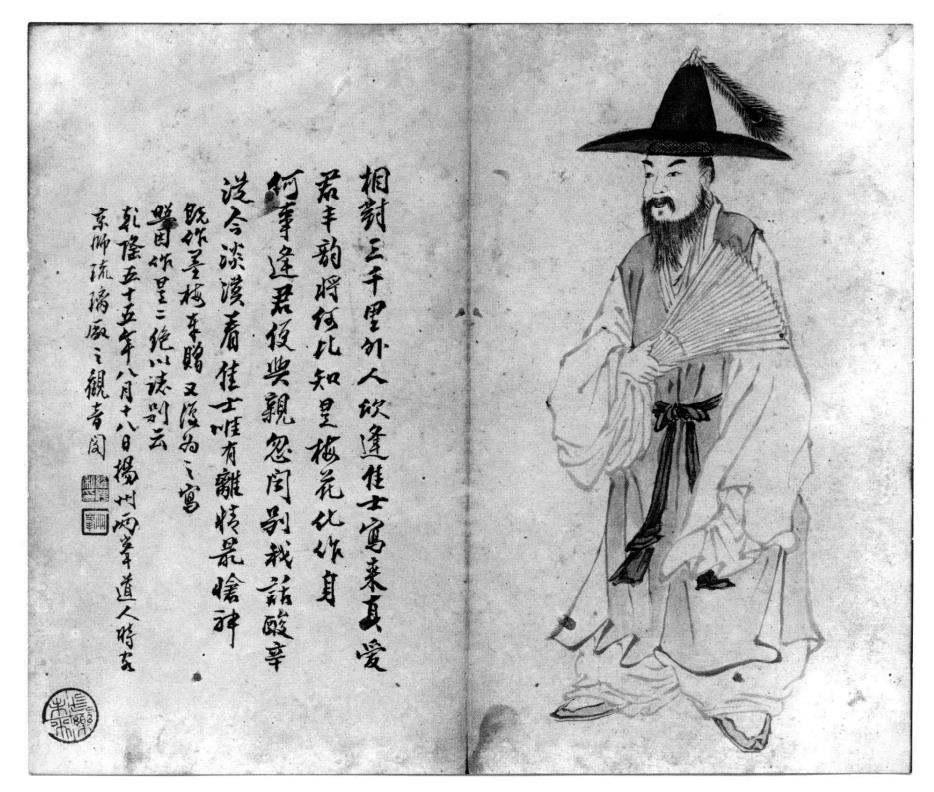 相對三千里外人欣逢佳士寫来真愛
君丰韵將何比知是梅花化作身
何事逢君便與親忽聞別我話酸辛
従今淡漠看佳士唯有離情最愴神
既作墨梅奉贈又復為之寫
照因作是二絶以誌別云
乾隆五十五年八月十八日揚州兩峯道人時客
京師琉璃廠之觀音閣
長樂未央